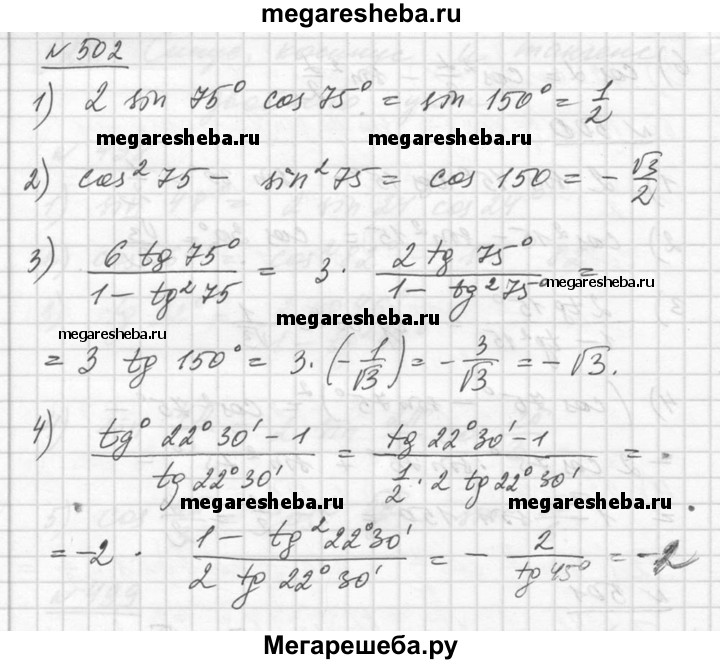 megaresheba.ru
№ 502
1) 2 sin 75° cos 75° = sin 150° = 1/2
megaresheba.ru megaresheba.ru
2) cos² 75 - sin² 75 = cos 150 = - √3/2
3) 6 tg 75° / 1 - tg² 75 = 3 · 2 tg 75° / 1 - tg² 75° =
megaresheba.ru
megaresheba.ru megaresheba.ru
= 3 tg 150° = 3 · (- 1/√3) = - 3/√3 = - √3.
4) tg° 22°30' - 1 / tg 22°30' = tg 22°30' - 1 / 1/2 · 2 tg 22°30' =
megaresheba.ru megaresheba.ru
= -2 · 1 - tg² 22°30' / 2 tg 22°30' = - 2 / tg 45° = -2
Мегарешеба.ру